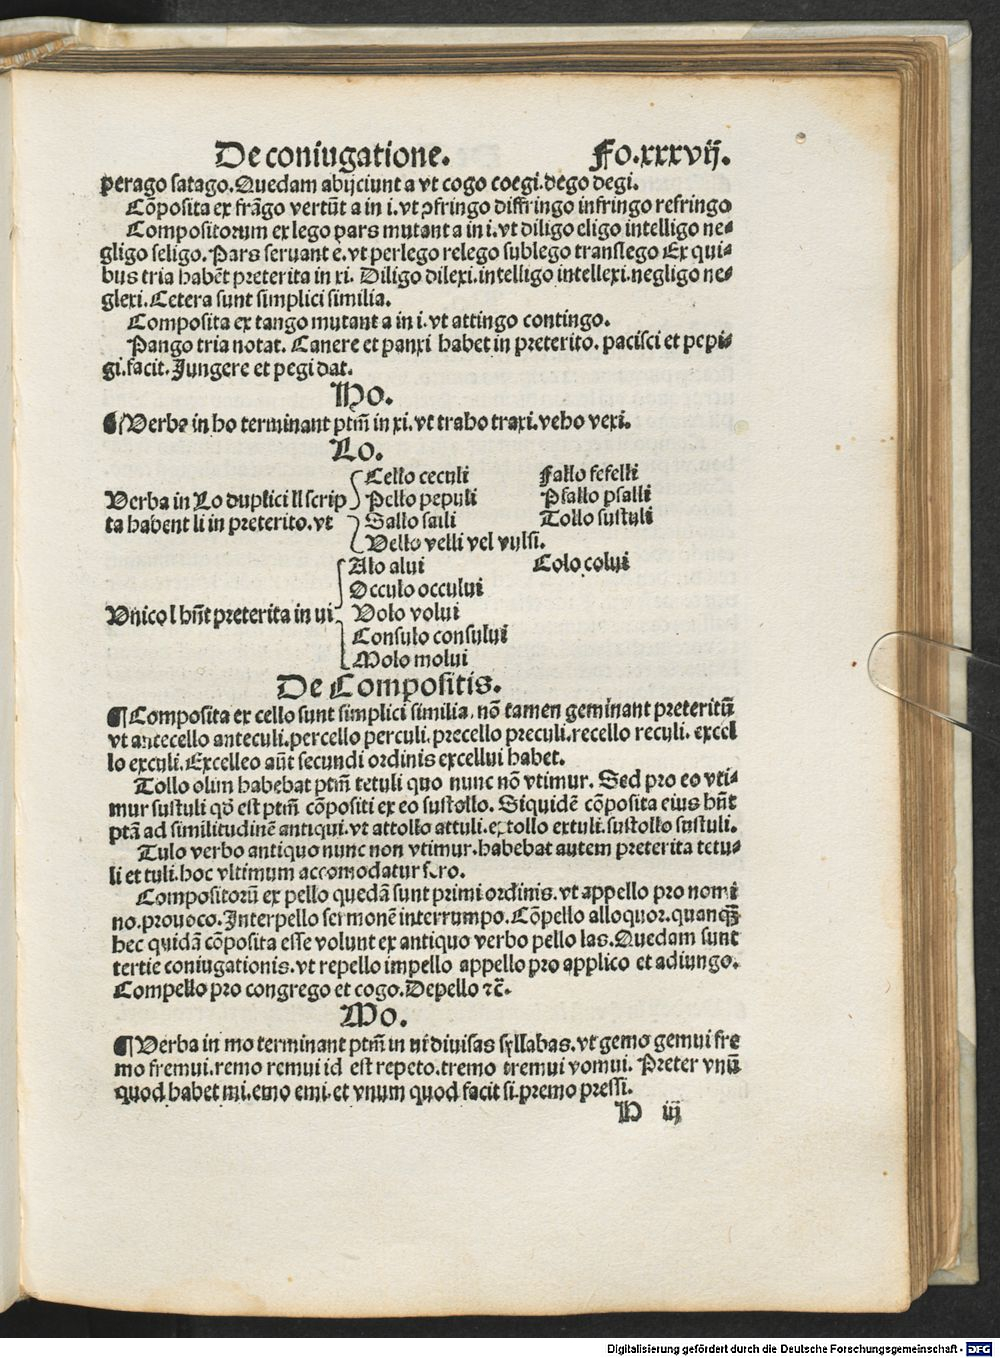 De coniugatione. Fo.xxxvij.
perago satago. Quedam abijciunt a vt cogo coegi. dego degi.
Cõposita ex frãgo vertũt a in i. vt ꝯfringo diffringo infringo refringo
Compositorum ex lego pars mutant a in i. vt diligo eligo intelligo ne-
gligo seligo. Pars seruant e. vt perlego relego sublego translego Ex qui-
bus tria habẽt preterita in xi. Diligo dilexi. intelligo intellexi. negligo ne-
glexi. Cetera sunt simplici similia.
Composita ex tango mutant a in i. vt attingo contingo.
Pango tria notat. Canere et panxi habet in preterito. pacisci et pepi-
gi. facit. Jungere et pegi dat.
Ho.
¶ Verba in ho terminant ptm̃ in xi. vt traho traxi. veho vexi.
Lo.
Cello ceculi Fallo fefelli
Verba in Lo duplici ll scrip Pello pepuli Psallo psalli
ta habent li in preterito. vt Sallo salli Tollo sustuli
Vello velli vel vulsi.
Alo alui Colo colui
Occulo occului
Vnico l hñt preterita in ui Volo volui
Consulo consului
Molo molui
De Compositis.
¶ Composita ex cello sunt simplici similia, nõ tamen geminant preteritũ
vt antecello anteculi. percello perculi. precello preculi. recello reculi. excel
lo exculi. Excelleo aũt secundi ordinis excellui habet.
Tollo olim habebat ptm̃ tetuli quo nunc nõ vtimur. Sed pro eo vti-
mur sustuli qđ est ptm̃ cõpositi ex eo sustollo. Siquidẽ cõposita eius hñt
ptã ad similitudinẽ antiqui. vt attollo attuli. extollo extuli. sustollo sustuli.
Tulo verbo antiquo nunc non vtimur. habebat autem preterita tetu-
li et tuli. hoc vltimum accomodatur fero.
Compositorũ ex pello quedã sunt primi ordinis. vt appello pro nomi
no. prouoco. Interpello sermonẽ interrumpo. Cõpello alloquor. quanqꝫ
hec quidã cõposita esse volunt ex antiquo verbo pello las. Quedam sunt
tertie coniugationis. vt repello impello appello pro applico et adiungo.
Compello pro congrego et cogo. Depello ⁊c̃.
Mo.
¶ Verba in mo terminant ptm̃ in ui diuisas syllabas. vt gemo gemui fre
mo fremui. remo remui id est repeto. tremo tremui vomui. Preter vnũ
quod habet mi. emo emi. et vnum quod facit si. premo pressi.
H iij
Digitalisierung gefördert durch die Deutsche Forschungsgemeinschaft - DFG